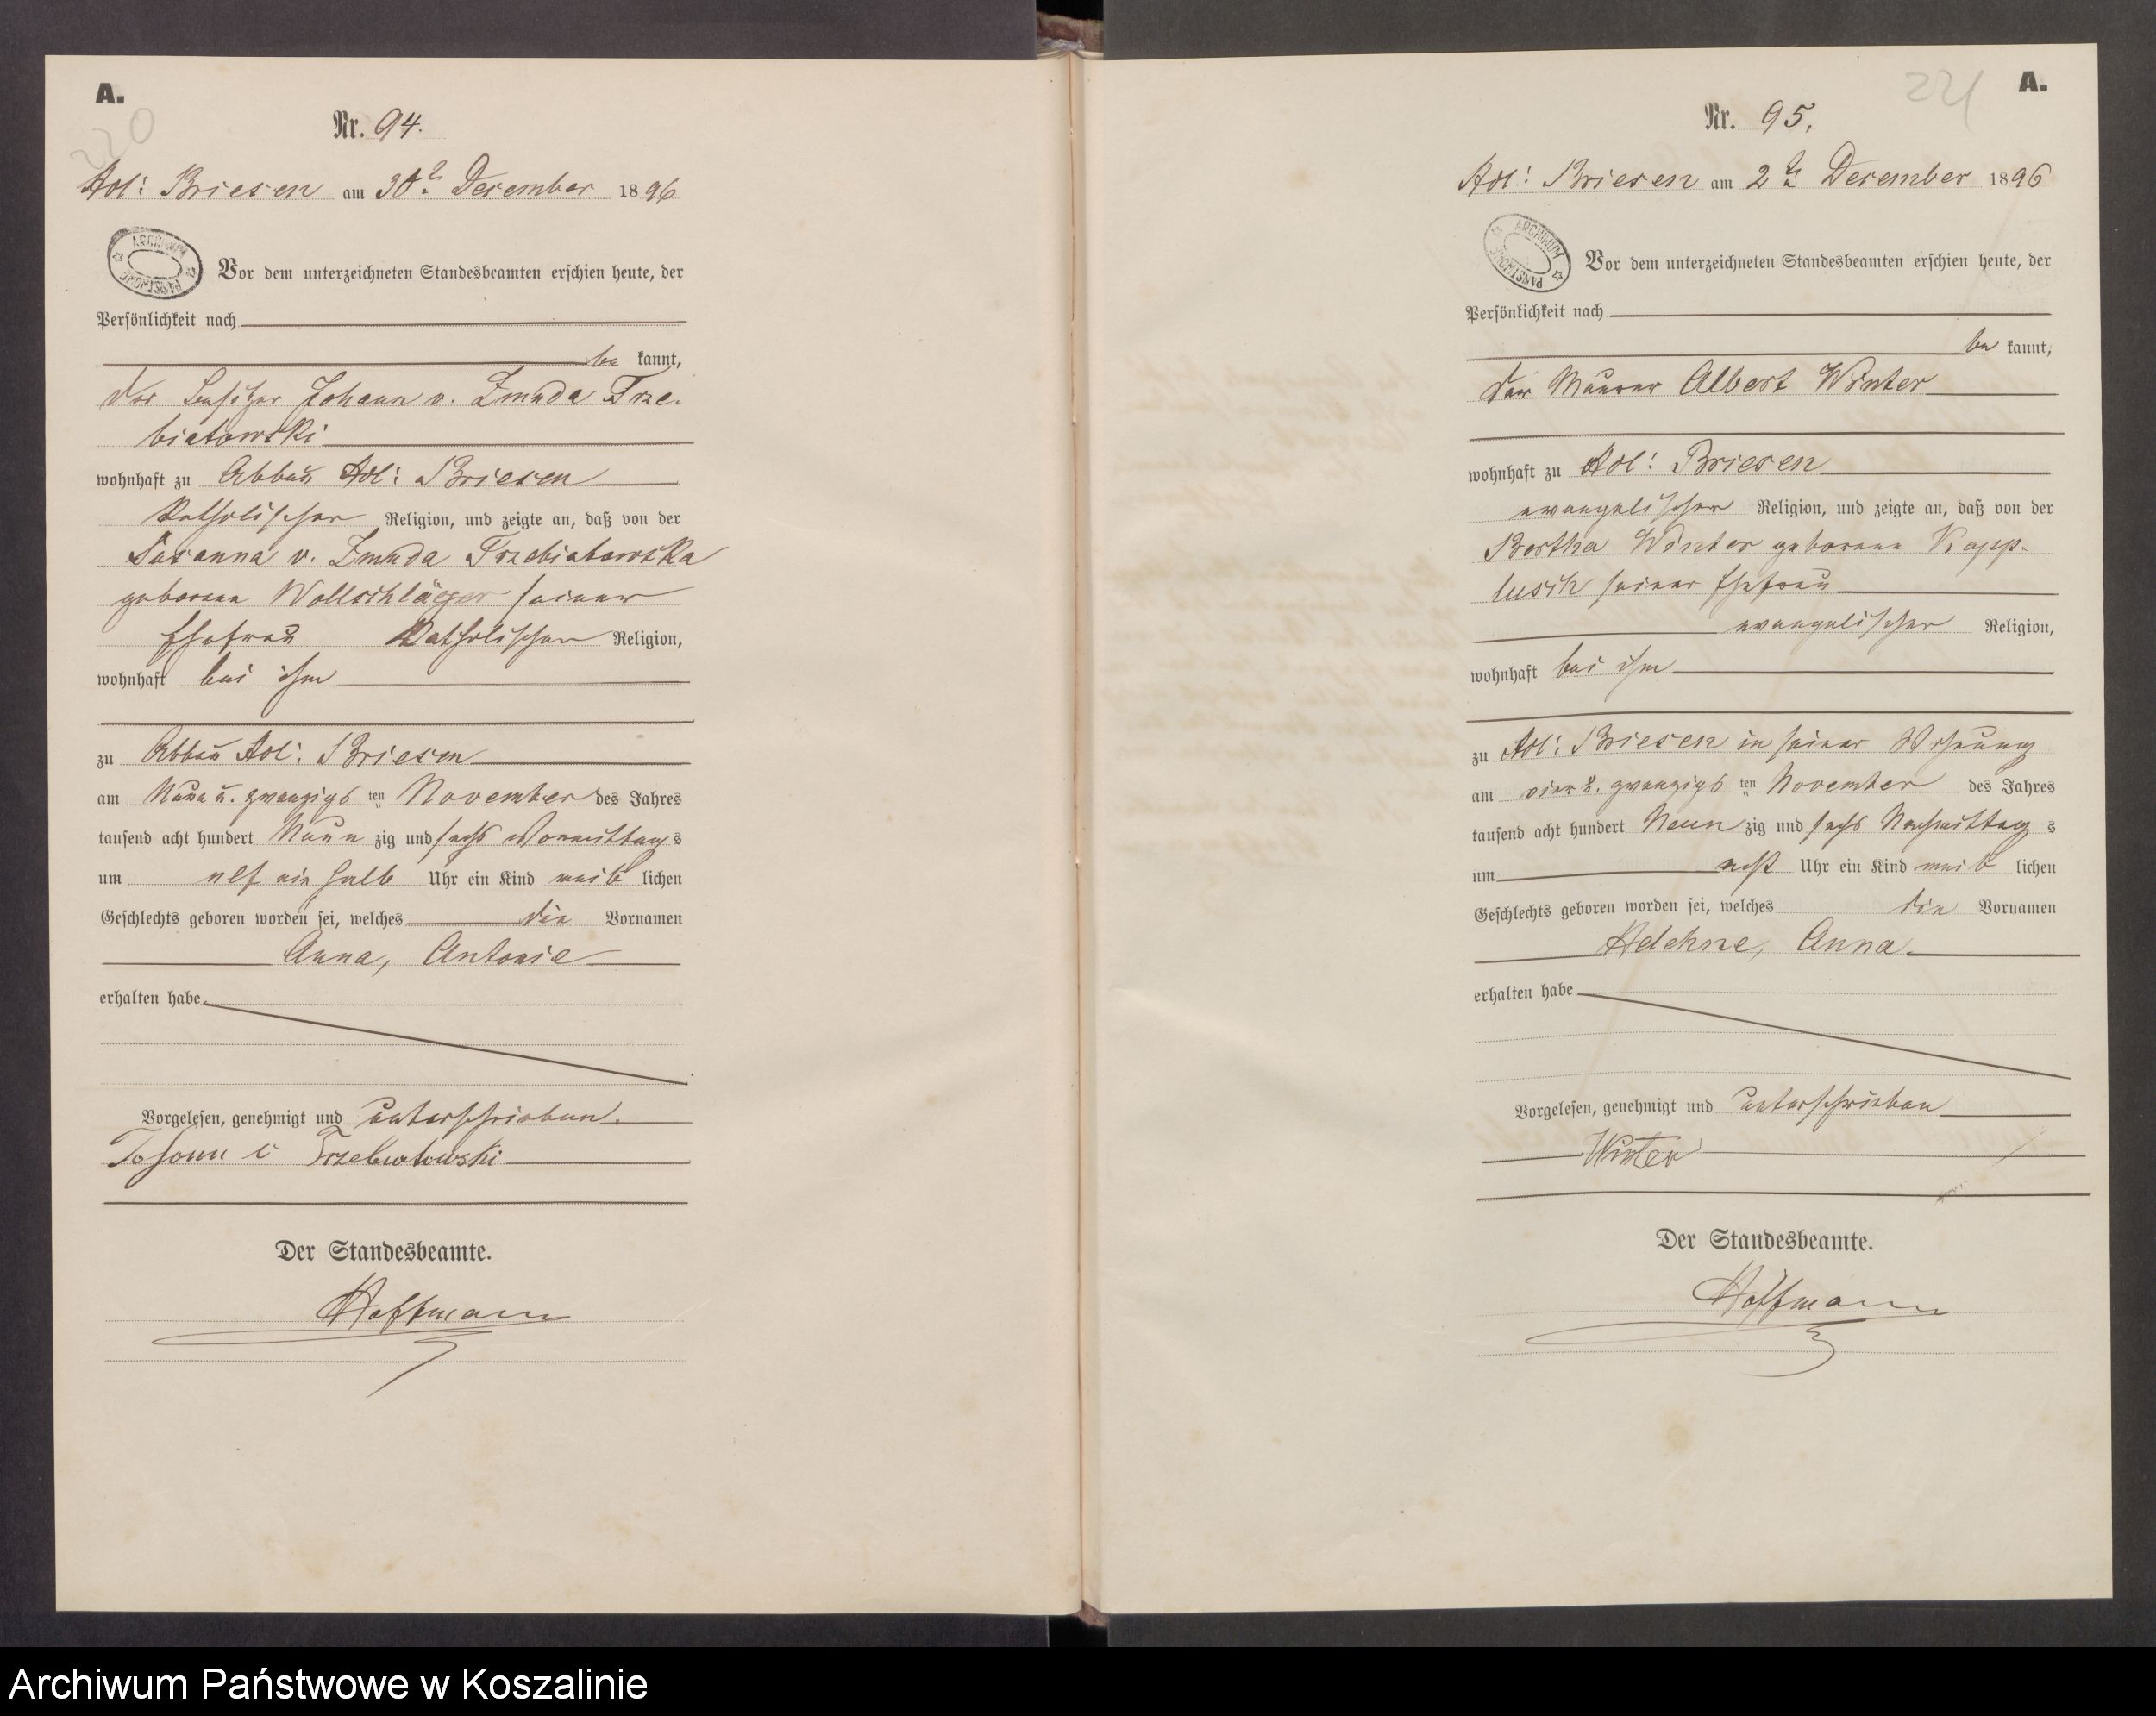 A.
220
Nr. 94.
Adl: Briesen am 30t. Dezember 1896
ARCHIWUM PAŃSTWOWE
Vor dem unterzeichneten Standesbeamten erschien heute, der
Persönlichkeit nach
be kannt,
der Besitzer Johann v. Zmuda Trze-
biatowski
wohnhaft zu Abbau Adl: Briesen
katholischer Religion, und zeigte an, daß von der
Susanna v. Zmuda Trzebiatowska
geborene Wollschläger seiner
Ehefrau katholischer Religion,
wohnhaft bei ihm
zu Abbau Adl: Briesen
am Neun u. zwanzigs ten November des Jahres
tausend acht hundert Neun zig und sechs Vormittag s
um elf ein halb Uhr ein Kind weib lichen
Geschlechts geboren worden sei, welches die Vornamen
Anna, Antonie
erhalten habe
Vorgelesen, genehmigt und unterschrieben.
Johann Trzebiatowski
Der Standesbeamte.
Hoffmann
A.
221
Nr. 95.
Adl: Briesen am 2t Dezember 1896
ARCHIWUM PAŃSTWOWE
Vor dem unterzeichneten Standesbeamten erschien heute, der
Persönlichkeit nach
be kannt,
der Maurer Albert Winter
wohnhaft zu Adl: Briesen
evangelischer Religion, und zeigte an, daß von der
Bertha Winter geborene Kapp-
lusch seiner Ehefrau
evangelischer Religion,
wohnhaft bei ihm
zu Adl: Briesen in seiner Wohnung
am vier u. zwanzigs ten November des Jahres
tausend acht hundert Neun zig und sechs Nachmittag s
um acht Uhr ein Kind weib lichen
Geschlechts geboren worden sei, welches die Vornamen
Helehne, Anna
erhalten habe
Vorgelesen, genehmigt und unterschrieben
Winter
Der Standesbeamte.
Hoffmann
Archiwum Państwowe w Koszalinie